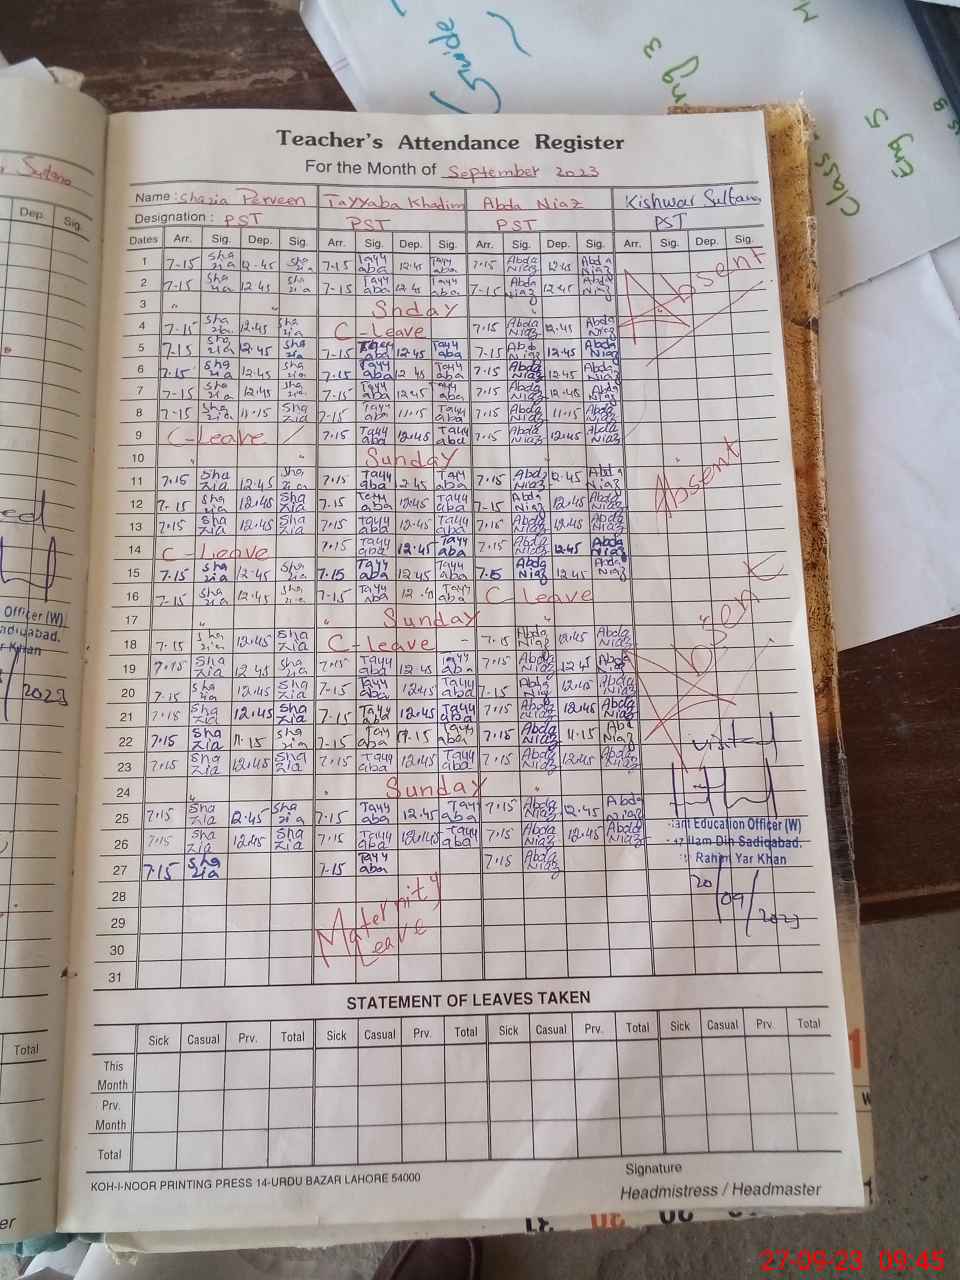 Teacher's Attendance Register
For the Month of September 2023
Name : Shazia Perveen Tayyaba Khadim Abda Niaz Kishwar Sultana
Designation : PST PST PST PST
Dates Arr. Sig. Dep. Sig. Arr. Sig. Dep. Sig. Arr. Sig. Dep. Sig. Arr. Sig. Dep. Sig.
1 7-15 Shazia 12.45 Shazia 7-15 Tayyaba 12.45 Tayyaba 7-15 Abda Niaz 12.45 Abda Niaz
2 7-15 Shazia 12.45 Shazia 7-15 Tayyaba 12.45 Tayyaba 7-15 Abda Niaz 12.45 Abda Niaz
Absent
3 " " Snday "
4 7-15 Shazia 12.45 Shazia C-Leave 7.15 Abda Niaz 12.45 Abda Niaz
5 7-15 Shazia 12.45 Shazia 7-15 Tayyaba 12.45 Tayyaba 7-15 Abda Niaz 12.45 Abda Niaz
6 7.15 Shazia 12.45 Shazia 7.15 Tayyaba 12.45 Tayyaba 7.15 Abda Niaz 12.45 Abda Niaz
7 7-15 Shazia 12.45 Shazia 7-15 Tayyaba 12.45 Tayyaba 7.15 Abda Niaz 12.45 Abda Niaz
8 7-15 Shazia 11.15 Shazia 7-15 Tayyaba 11.15 Tayyaba 7.15 Abda Niaz 11.15 Abda Niaz
9 C-Leave 7.15 Tayyaba 12.45 Tayyaba 7.15 Abda Niaz 12.45 Abda Niaz
10 " " Sunday " "
11 7.15 Shazia 12.45 Shazia 7.15 Tayyaba 12.45 Tayyaba 7.15 Abda Niaz 12.45 Abda Niaz
Absent
12 7-15 Shazia 12.45 Shazia 7.15 Tayyaba 12.45 Tayyaba 7-15 Abda Niaz 12.45 Abda Niaz
13 7.15 Shazia 12.45 Shazia 7.15 Tayyaba 12.45 Tayyaba 7.15 Abda Niaz 12.45 Abda Niaz
14 C-Leave 7.15 Tayyaba 12.45 Tayyaba 7.15 Abda Niaz 12.45 Abda Niaz
15 7.15 Shazia 12.45 Shazia 7.15 Tayyaba 12.45 Tayyaba 7.15 Abda Niaz 12.45 Abda Niaz
16 7-15 Shazia 12.45 Shazia 7-15 Tayyaba 12.45 Tayyaba C-Leave
17 " Sunday "
18 7.15 Shazia 12.45 Shazia C-Leave - 7.15 Abda Niaz 12.45 Abda Niaz
Absent
19 7.15 Shazia 12.45 Shazia 7.15 Tayyaba 12.45 Tayyaba 7.15 Abda Niaz 12.45 Abda Niaz
20 7.15 Shazia 12.45 Shazia 7-15 Tayyaba 12.45 Tayyaba 7-15 Abda Niaz 12.45 Abda Niaz
21 7.15 Shazia 12.45 Shazia 7-15 Tayyaba 12.45 Tayyaba 7.15 Abda Niaz 12.45 Abda Niaz
22 7.15 Shazia 11.15 Shazia 7-15 Tayyaba 11.15 Tayyaba 7.15 Abda Niaz 11.15 Abda Niaz
23 7.15 Shazia 12.45 Shazia 7.15 Tayyaba 12.45 Tayyaba 7.15 Abda Niaz 12.45 Abda Niaz
visited
24 " " Sunday "
25 7.15 Shazia 12.45 Shazia 7.15 Tayyaba 12.45 Tayyaba 7.15 Abda Niaz 12.45 Abda Niaz
26 7.15 Shazia 12.45 Shazia 7.15 Tayyaba 12.45 Tayyaba 7.15 Abda Niaz 12.45 Abda Niaz
27 7.15 Shazia 7-15 Tayyaba 7.15 Abda Niaz
Education Officer (W)
Din Sadiqabad.
Rahim Yar Khan
20/09/2023
28
29
30
31
Maternity
Leave
STATEMENT OF LEAVES TAKEN
Sick Casual Prv. Total Sick Casual Prv. Total Sick Casual Prv. Total Sick Casual Prv. Total
This Month
Prv. Month
Total
KOH-I-NOOR PRINTING PRESS 14-URDU BAZAR LAHORE 54000
Signature
Headmistress / Headmaster
Sultana
Dep. Sig.
Officer (W)
Sadiqabad.
Khan
2023
Total
Guide
Eng
Class
Eng 5
27-09-23 09:45